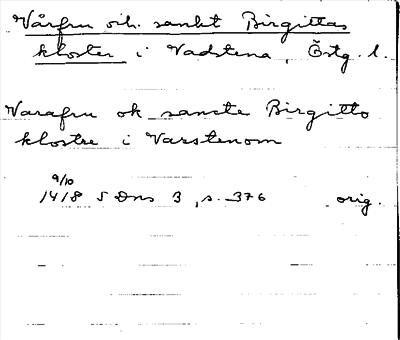 Vårfru och sankt Birgittas
kloster i Vadstena, Östg. l.
Varafru ok sancte Birgitto
klostre i Varstenom
9/10
1418 SDns 3, s. 376 orig.